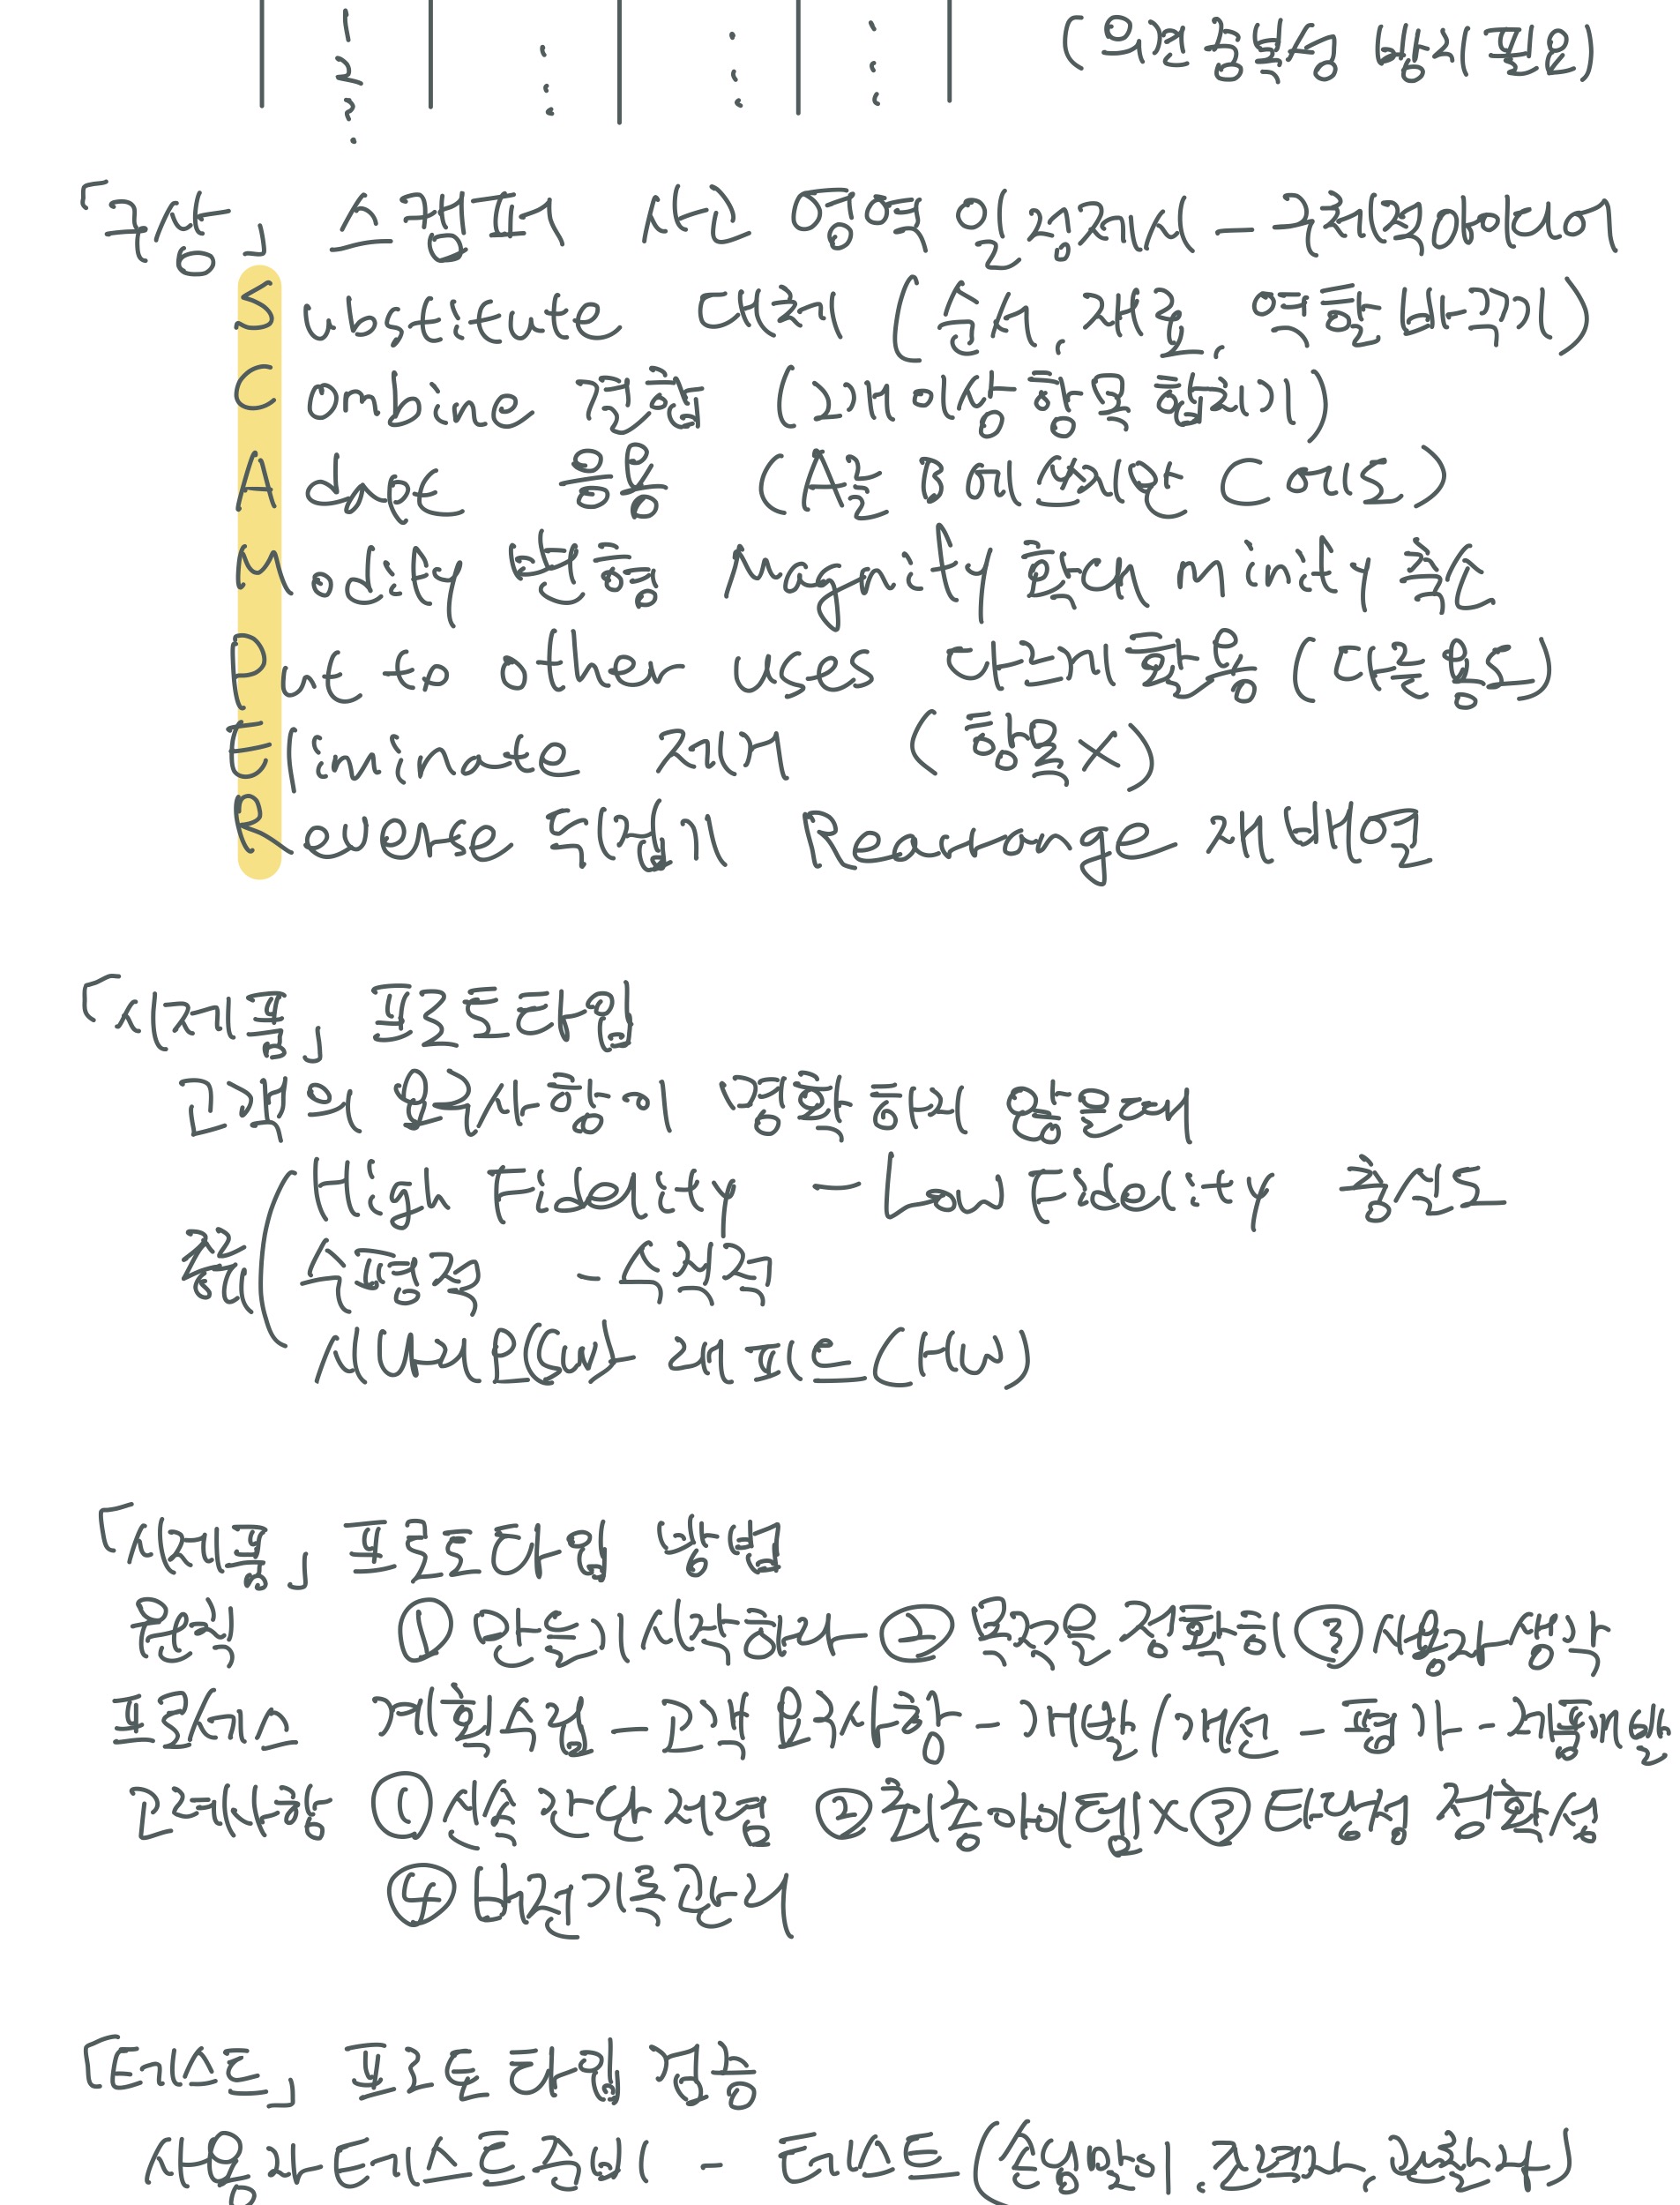 (우연중복성 방지 필요)
「구상」 스캠퍼 사고 영역 일정제시 - 구체적아이디어
Substitute 대체 (순서, 재료, 역할 바꾸기)
Combine 결합 (2개 이상 항목 합치기)
Adapt 응용 (A를 B에 쓰지만 C에도)
Modify 변증 Magnify 확대 minify 축소
Put to other uses 다르게 활용 (다른 용도)
Eliminate 제거 (학물X)
Reverse 뒤집기 Rearrange 재배열
「시제품」 프로토타입
고객의 요구사항이 명확하지 않을 때
High Fidelity - Low Fidelity 충실도
축 수평적 - 수직적
시나리오(SW) - 레포트(HW)
「시제품」 프로토타입 방법
원칙 ① 만들기 시작하라 ② 목적을 정확히 ③ 사용자 생각
프로세스 계획수립 - 고객 요구사항 - 개발/개선 - 평가 - 제품개발
고려사항 ① 신속 간단 저렴 ② 최종이미지 집착X ③ 타당성 정확성
④ 버전기록관리
「테스트」 프로토타입 검증
사용자 테스트 준비 - 테스트 (소령말이, 진행자, 관찰자)